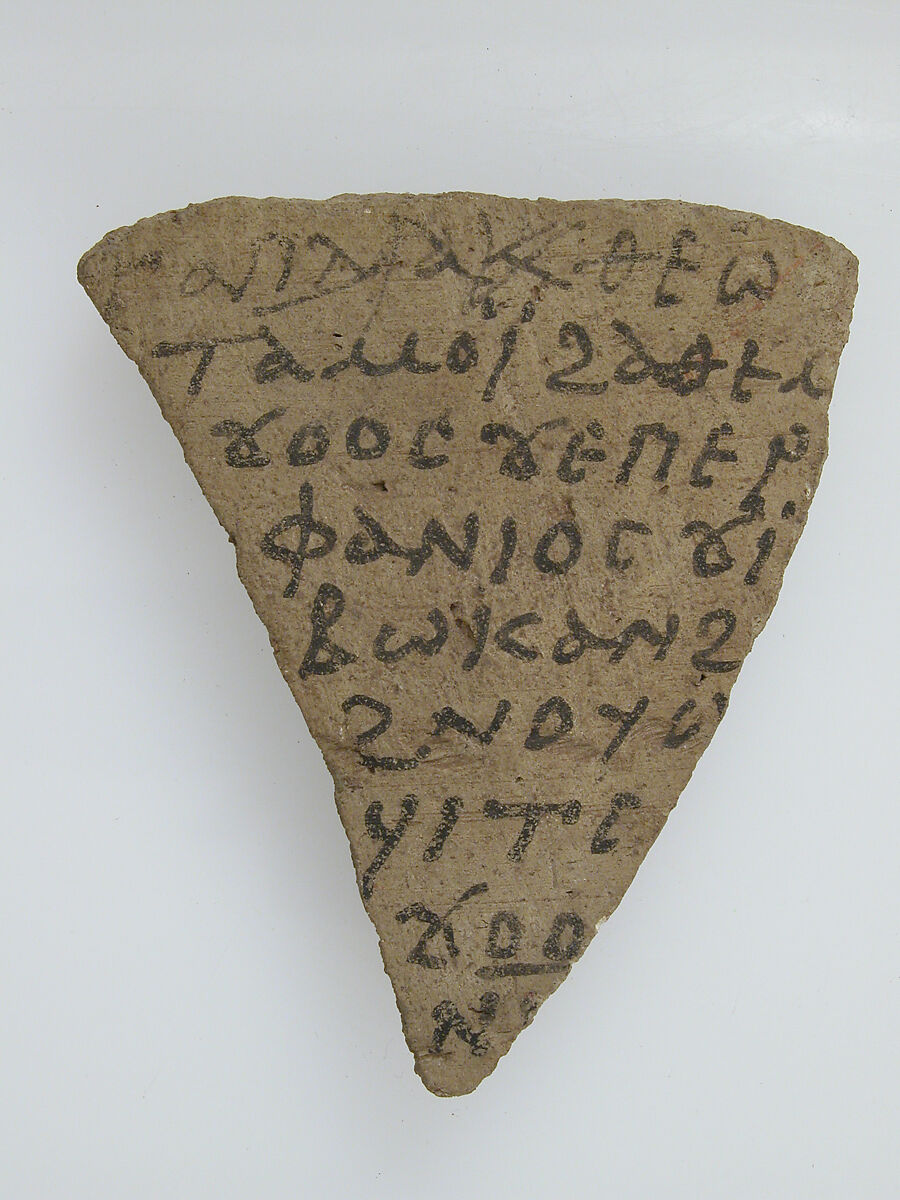 ⲑⲉⲱ
ⲧⲁⲙⲟⲓ ϩⲁⲑⲉ
ϫⲟⲟⲥ ϫⲉⲡⲉⲣ
ⲫⲁⲛⲓⲟⲥ ϫⲓ
ⲃⲱⲕⲁⲛϩ
ϩⲛⲟⲩⲱ
ϥⲓⲧⲥ
ϫⲟⲟ
ⲛ